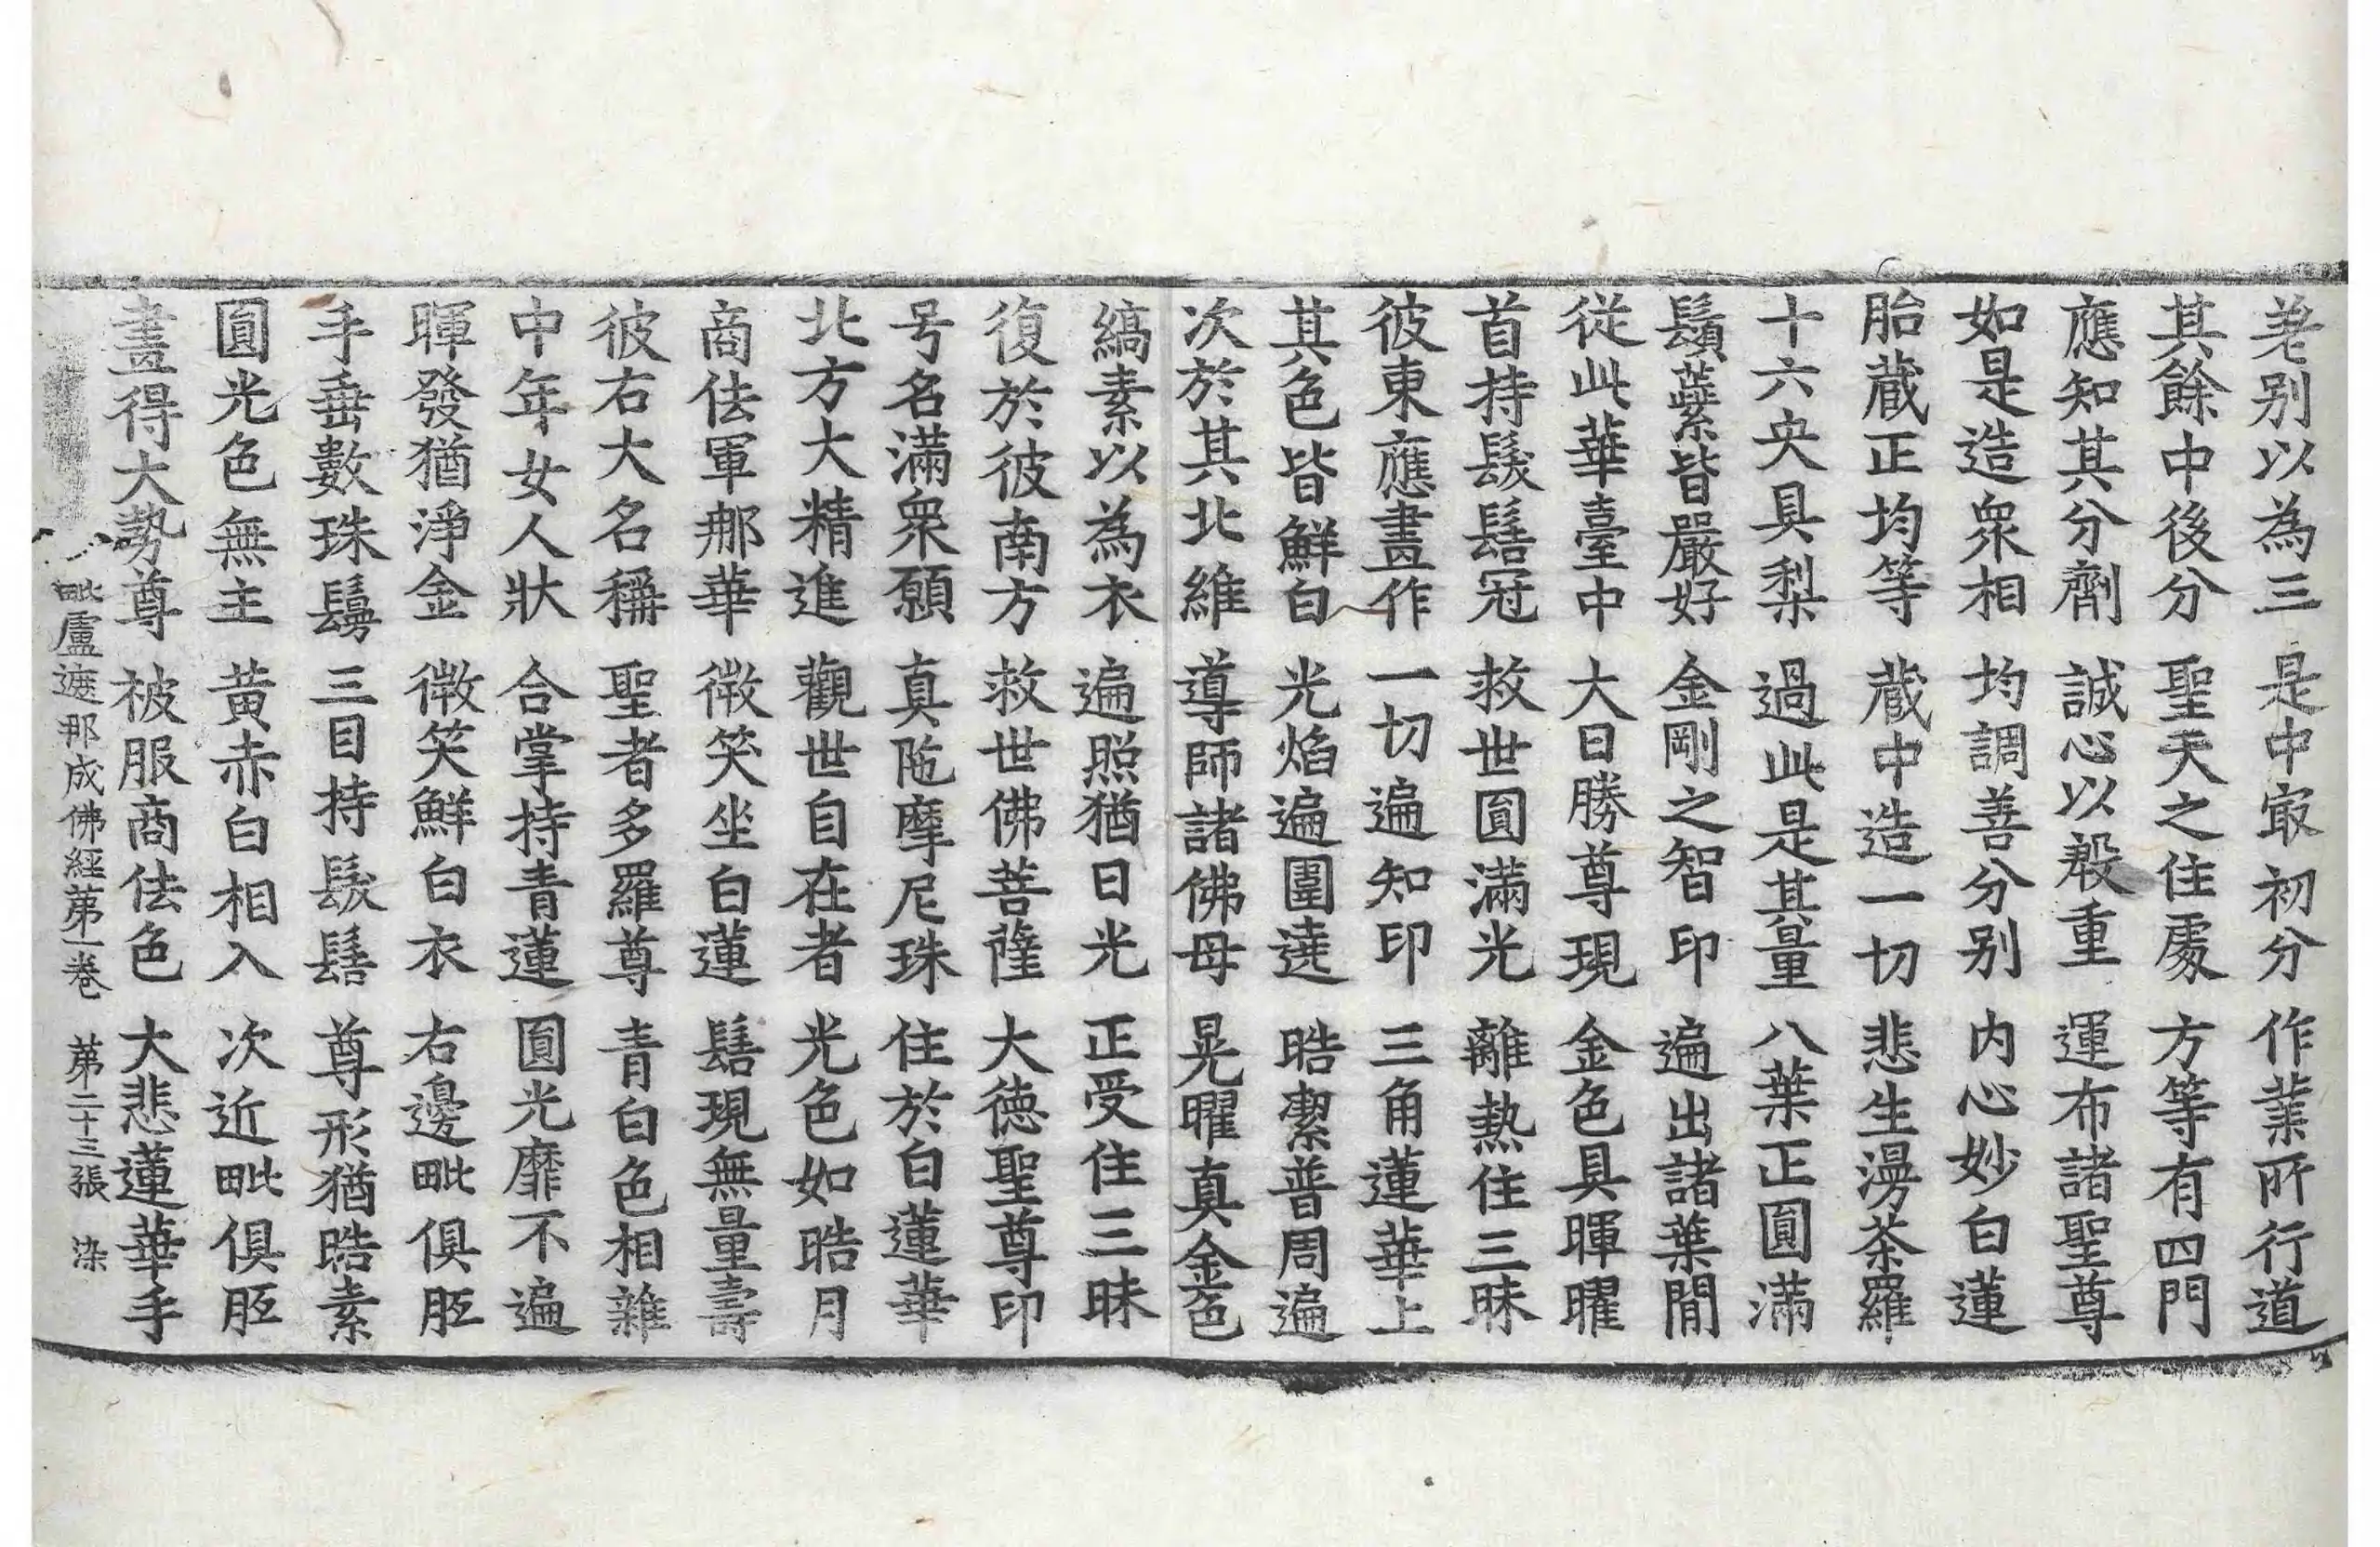 差别以為三 是中㝡初分 作業所行道
其餘中後分 聖天之住處 方等有四門
應知其分劑 誠心以殷重 運布諸聖尊
如是造衆相 均調善分别 内心妙白蓮
胎蔵正均等 蔵中造一切 悲生漫荼羅
十六央具梨 過此是其量 八葉正圓滿
鬚蘂皆嚴好 金剛之智印 遍出諸葉間
従此華臺中 大日勝尊現 金色具暉曜
首持髮髻冠 救世圓滿光 離熱住三昧
彼東應畫作 一切遍知印 三角蓮華上
其色皆鮮白 光焰遍圍遶 晧潔普周遍
次於其北維 導師諸佛母 晃曜真金色
縞素以為衣 遍照猶日光 正受住三昧
復於彼南方 救世佛菩薩 大德聖尊印
号名滿衆願 真陁摩尼珠 住於白蓮華
北方大精進 觀世自在者 光色如晧月
商佉軍那華 微笑坐白蓮 髻現無量壽
彼右大名稱 聖者多羅尊 青白色相雜
中年女人狀 合掌持青蓮 圓光靡不遍
暉發猶淨金 微笑鮮白衣 右邊毗俱胝
手垂數珠鬘 三目持髮髻 尊形猶晧素
圓光色無主 黄赤白相入 次近毗俱胝
畫得大勢尊 被服商佉色 大悲蓮華手
毗盧遮那成佛經第一卷 第二十三張 染